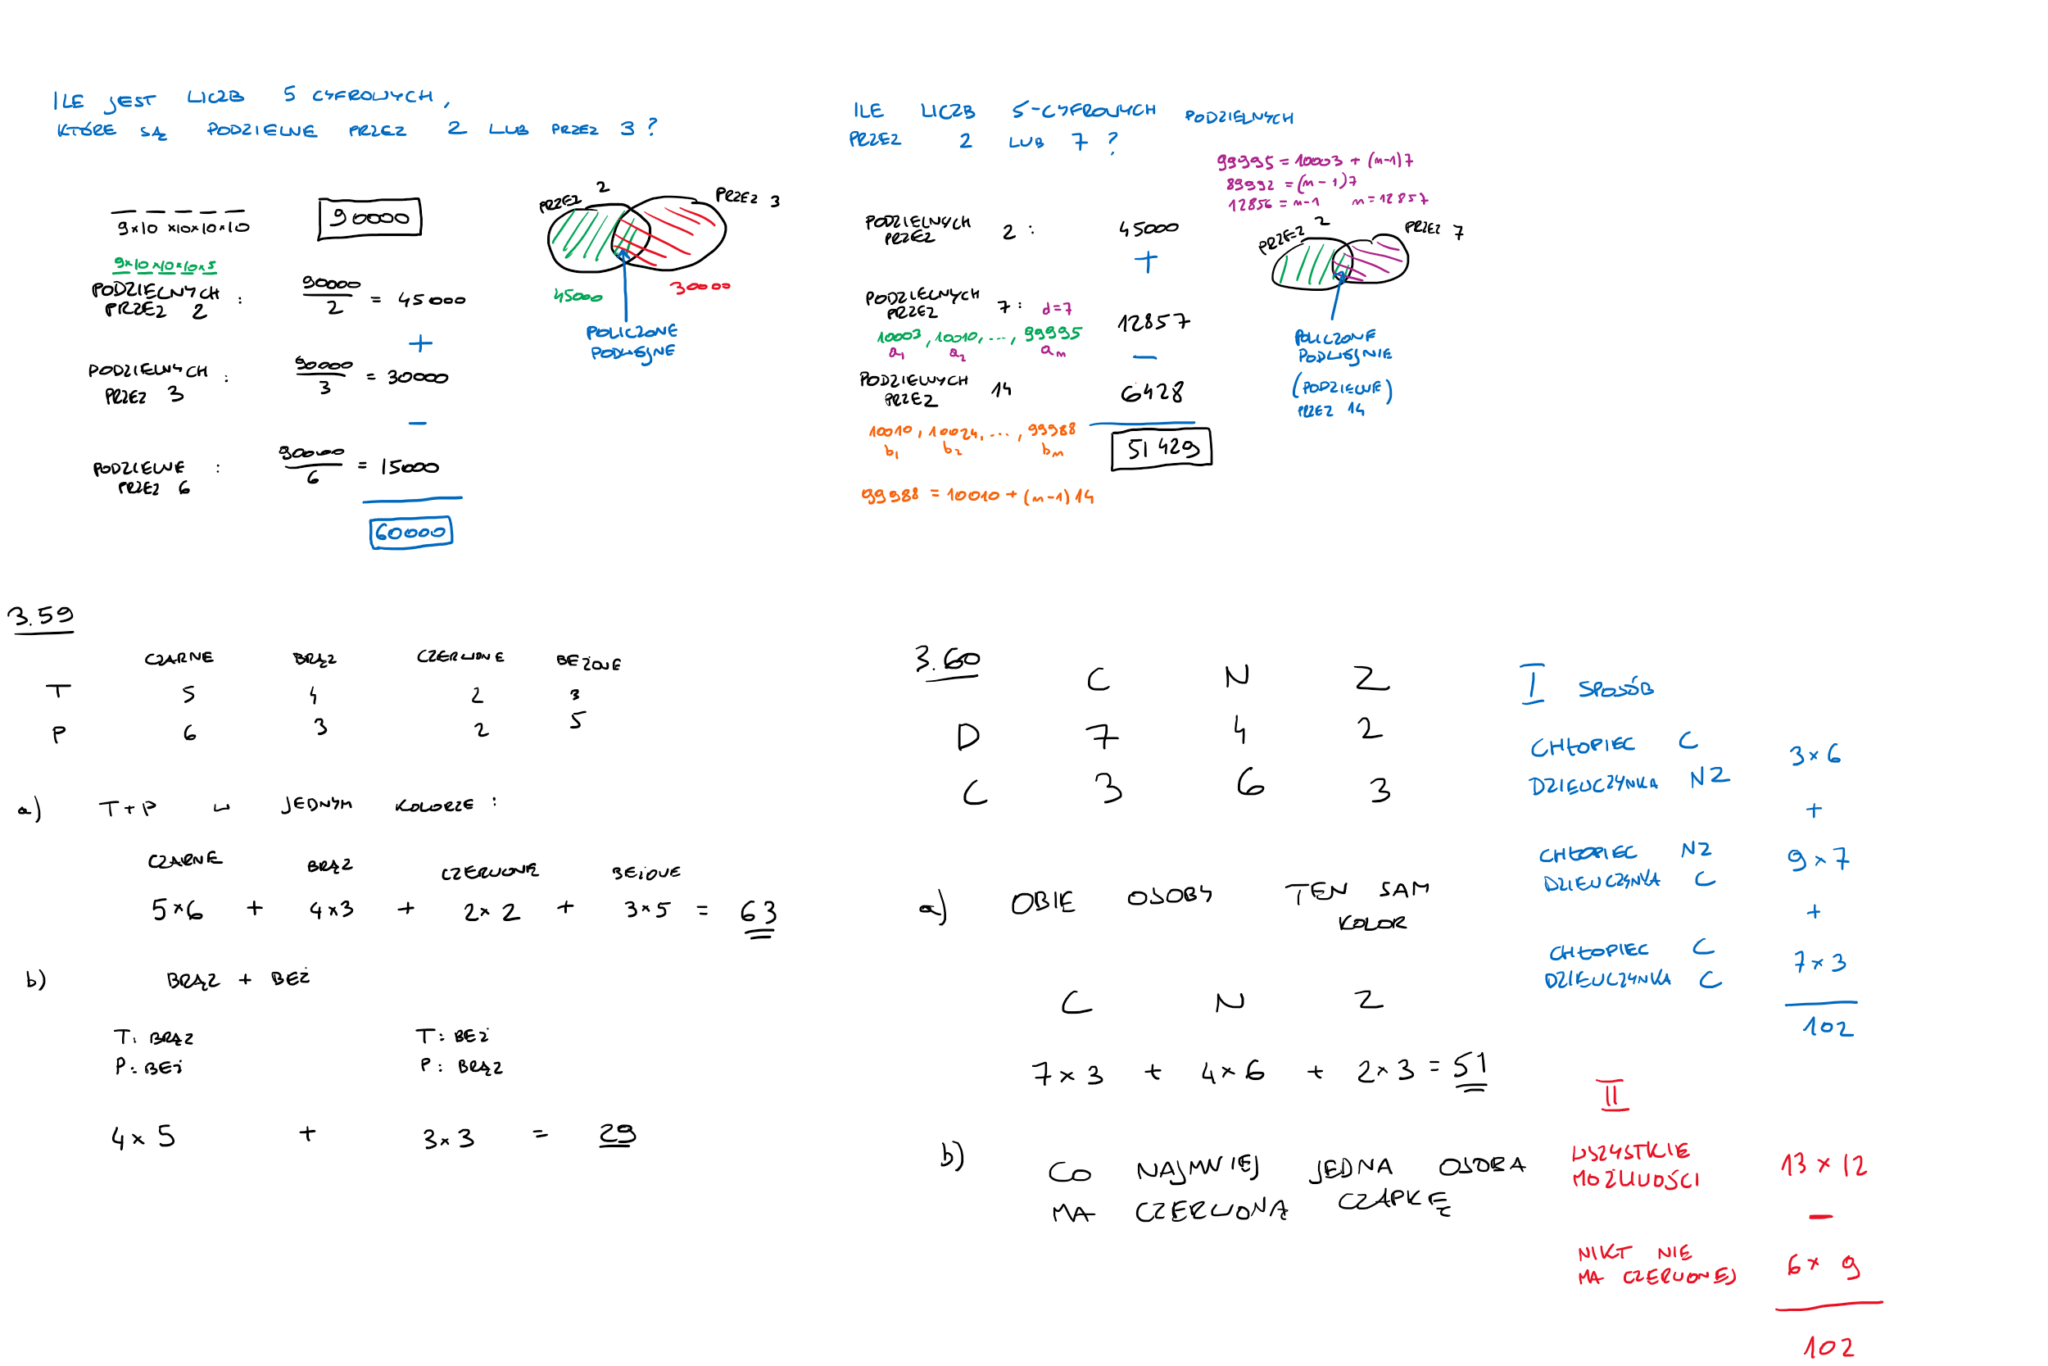 ILE JEST LICZB 5 CYFROWYCH,
KTÓRE SĄ PODZIELNE PRZEZ 2 LUB PRZEZ 3?
9×10×10×10×10
90000
9×10×10×10×5
PODZIELNYCH
PRZEZ 2 : 90000/2 = 45000
+
PODZIELNYCH
PRZEZ 3 : 90000/3 = 30000
−
PODZIELNE
PRZEZ 6 : 90000/6 = 15000
60000
PRZEZ 2
PRZEZ 3
45000
30000
POLICZONE
PODWÓJNE
ILE LICZB 5-CYFROWYCH PODZIELNYCH
PRZEZ 2 LUB 7?
99995 = 10003 + (n-1)7
89992 = (n-1)7
12856 = n-1 n=12857
PODZIELNYCH
PRZEZ 2 : 45000
+
PODZIELNYCH
PRZEZ 7 : d=7 12857
10003, 10010, ..., 99995
a1 a2 an
−
PODZIELNYCH
PRZEZ 14 6428
10010, 10024, ..., 99988
b1 b2 bn
51429
99988 = 10010 + (n-1)14
PRZEZ 2
PRZEZ 7
POLICZONE
PODWÓJNIE
(PODZIELNE)
PRZEZ 14
3.59
CZARNE BRĄZ CZERWONE BEŻOWE
T 5 4 2 3
P 6 3 2 5
a) T+P W JEDNYM KOLORZE :
CZARNE BRĄZ CZERWONE BEŻOWE
5×6 + 4×3 + 2×2 + 3×5 = 63
b) BRĄZ + BEŻ
T: BRĄZ T: BEŻ
P: BEŻ P: BRĄZ
4×5 + 3×3 = 29
3.60
C N Z
D 7 4 2
C 3 6 3
a) OBIE OSOBY TEN SAM
KOLOR
C N Z
7×3 + 4×6 + 2×3 = 51
b) CO NAJMNIEJ JEDNA OSOBA
MA CZERWONĄ CZAPKĘ
I SPOSÓB
CHŁOPIEC C
DZIEWCZYNKA NZ 3×6
+
CHŁOPIEC NZ
DZIEWCZYNKA C 9×7
+
CHŁOPIEC C
DZIEWCZYNKA C 7×3
102
II
WSZYSTKIE
MOŻLIWOŚCI 13×12
−
NIKT NIE
MA CZERWONEJ 6×9
102